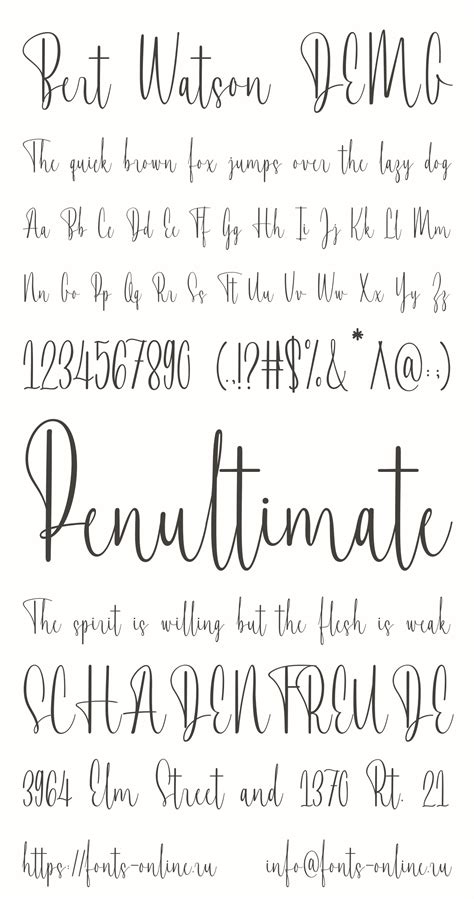 Bert Watson DEMO
The quick brown fox jumps over the lazy dog
Aa Bb Cc Dd Ee Ff Gg Hh Ii Jj Kk Ll Mm
Nn Oo Pp Qq Rr Ss Tt Uu Vv Ww Xx Yy Zz
1234567890 (.,!?#$%&*^@:;)
Penultimate
The spirit is willing but the flesh is weak
SCHADENFREUDE
3964 Elm Street and 1370 Rt. 21
https://fonts-online.ru info@fonts-online.ru